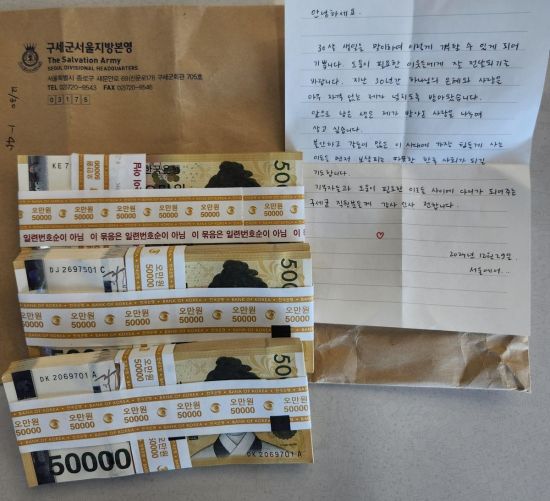 구세군서울지방본영
The Salvation Army
SEOUL DIVISIONAL HEADQUARTERS
서울특별시 종로구 새문안로 69(신문로1가) 구세군회관 705호
TEL 02)720-9543 FAX 02)720-9546
03175
안녕하세요.
30살 생일을 맞이하여 이렇게 결할 수 있게 되어
기쁩니다. 도움이 필요한 이웃에게 잘 전달되기를
바랍니다. 지난 30년간 하나님의 은혜와 사랑을
아무 자격 없는 제가 넘치도록 받아왔습니다.
앞으로 남은 생은 제가 받아온 사랑을 나누며
살고 싶습니다.
분산하고 갈등이 많은 이 시대에 가장 힘들게 사는
이들을 먼저 보살피는 따뜻한 한국 사회가 되길
기도합니다.
기부자들과 도움이 필요한 이들 사이에 다리가 되어주는
구세군 직원분들께 감사 인사 전합니다.
2024년 12월 29일
서울에서..
KE 7
한국은행
5000
오만원 50000 오만원 50000 오만원 50000
일련번호순이 아님 이 묶음은 일련번호순이 아님 이 묶음은 일련번호순이 아님
DJ 2697501 C
500
BANK OF KOREA
오만원 50000 오만원 50000 오만원 50000
DK 2069701 A
500
BANK OF KOREA
오만원 50000 오만원 50000 오만원 50000
50000
DK 2069701 A